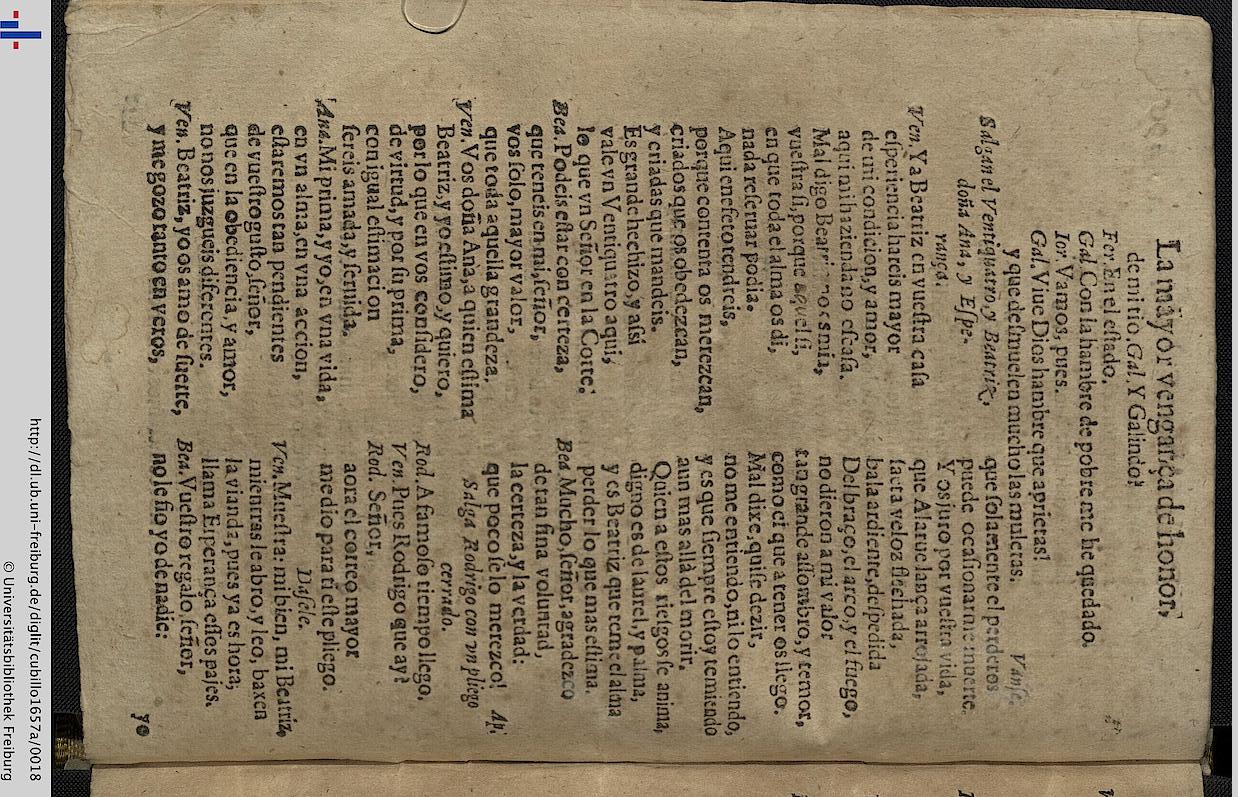 La mayor vengança de honor,
de mi tio. Gal. Y Galindo?
For. En el estado.
Gal. Con la hambre de pobre me he quedado.
Ior. Vamos, pues.
Gal. Viue Dios hambre que aprietas!
y que desmuelen mucho las muletas.
Vanse.
Salgan el Ventiquatro, y Beatriz,
doña Ana, y Espe-
rança.
Ven. Ya Beatriz en vuestra casa
esperiencia hareis mayor
de mi condicion, y amor,
aqui mi hazienda no escasa.
Mal digo Beatriz no es mia,
vuestra si, porque aquel si,
en que toda el alma os di,
nada reseruar podia.
Aqui en efeto tendreis,
porque contenta os merezcan,
criados que os obedezcan,
y criadas que mandeis.
Es grande hechizo, y assi
vale vn Ventiquatro aqui,
lo que vn Señor en la Corte.
Bea. Podeis estar con certeza,
que teneis en mi, señor,
vos solo, mayor valor,
que toda aquella grandeza.
Ven. Vos doña Ana, a quien estima
Beatriz, y yo estimo, y quiero,
por lo que en vos considero,
de virtud, y por su prima,
con igual estimacion
sereis amada, y seruida.
Ana. Mi prima, y yo, en vna vida,
en vn alma, en vna accion,
estaremos tan pendientes
de vuestro gusto, señor,
que en la obediencia, y amor,
no nos juzgueis diferentes.
Ven. Beatriz, yo os amo de suerte,
y me gozo tanto en veros,
que solamente el perderos
puede ocasionarme muerte.
Yo juro por vuestra vida,
que Alarue lança arrojada,
saeta veloz flechada,
bala ardiente, despedida
Del braço, el arco, y el fuego,
no dieron a mi valor
tan grande assombro, y temor,
como el que a tener os llego.
Mal dixe, quise dezir,
no me entiendo, ni lo entiendo,
y es que siempre estoy temiendo
aun mas allà del morir.
Quien a estos riesgos se anima,
digno es de laurel, y palma,
y es Beatriz que teme el alma
perder lo que mas estima.
Bea. Mucho, señor, agradezco
de tan fina voluntad,
la certeza, y la verdad:
que poco se lo merezco! Ap.
Salga Rodrigo con vn pliego
cerrado.
Rod. A famoso tiempo llego.
Ven. Pues Rodrigo que ay?
Rod. Señor,
aora el correo mayor
me dio para ti este pliego.
Dasele.
Ven. Muestra: mi bien, mi Beatriz,
mientras le abro, y leo, baxen
la vianda, pues ya es hora;
llama Esperança essos pajes.
Bea. Vuestro regalo, señor,
no le fio yo de nadie:
yo
http://dl.ub.uni-freiburg.de/diglit/cubillo1657a/0018
© Universitätsbibliothek Freiburg